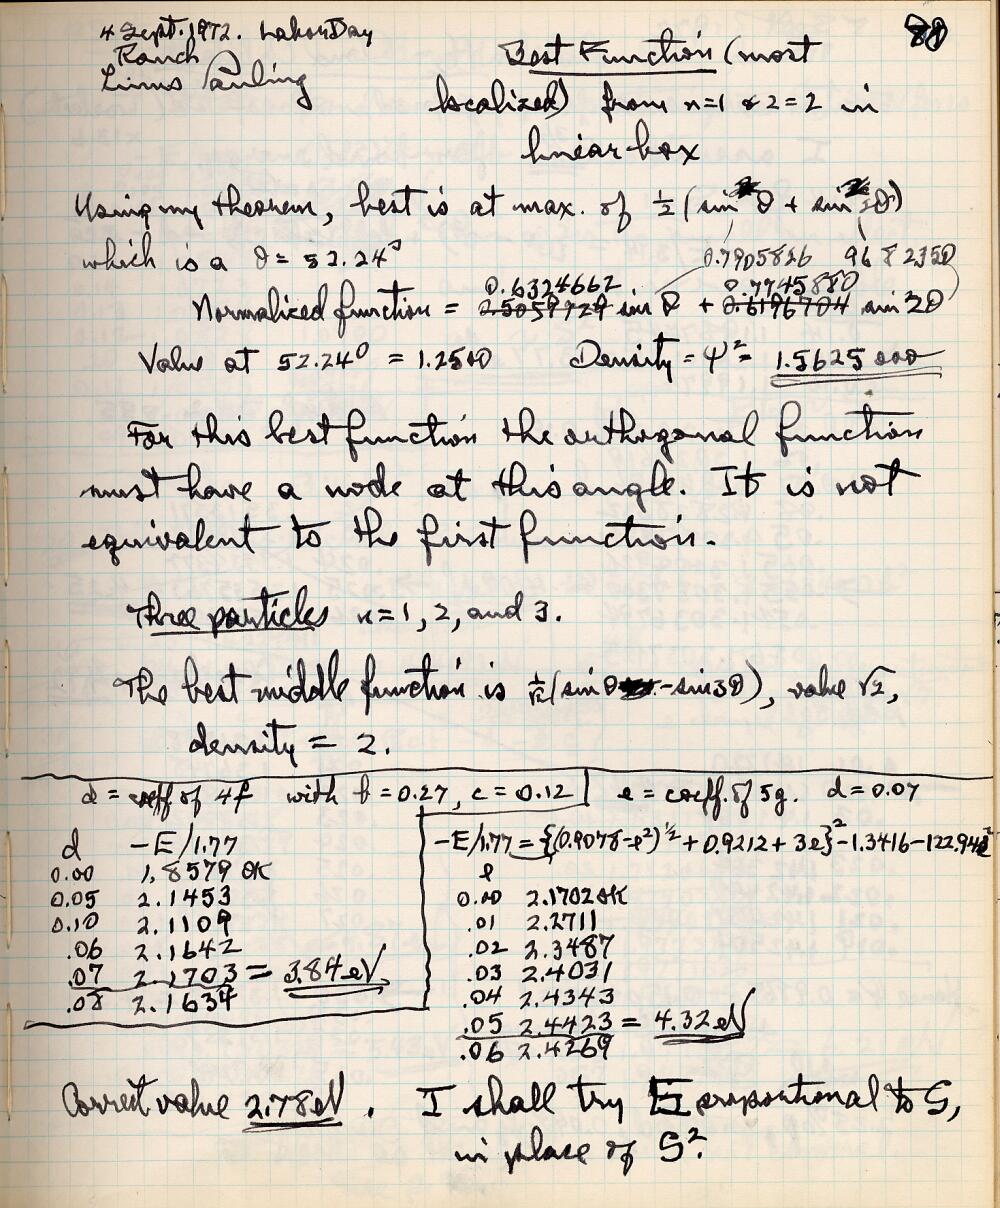 4 Sept. 1972. Labor Day
Ranch
Linus Pauling
Best Function (most
localized) from n=1 & 2=2 in
linear box
Using my theorem, best is at max. of ½ (sin θ + sin 2θ)
which is a θ = 52.24°
0.7905826 9682350
0.6324662 0.7745880
Normalized function = 0.5059729 sin θ + 0.6196704 sin 2θ
Value at 52.24° = 1.2500 Density = ψ² = 1.5625000
For this best function the orthogonal function
must have a node at this angle. It is not
equivalent to the first function.
Three particles n=1, 2, and 3.
The best middle function is 1/√2 (sin θ - sin 3θ), value √2,
density = 2.
d = coeff of 4f with b = 0.27, c = 0.12
d -E/1.77
0.00 1.8579 OK
0.05 2.1453
0.10 2.1109
.06 2.1642
.07 2.1703 = 3.84 eV
.08 2.1634
e = coeff. of 5g. d = 0.07
-E/1.77 = {(0.9078-e²)^½ + 0.9212 + 3e}² - 1.3416 - 122.94e²
e
0.00 2.1702 OK
.01 2.2711
.02 2.3487
.03 2.4031
.04 2.4343
.05 2.4423 = 4.32 eV
.06 2.4269
Correct value 2.78 eV. I shall try E proportional to S,
in place of S².